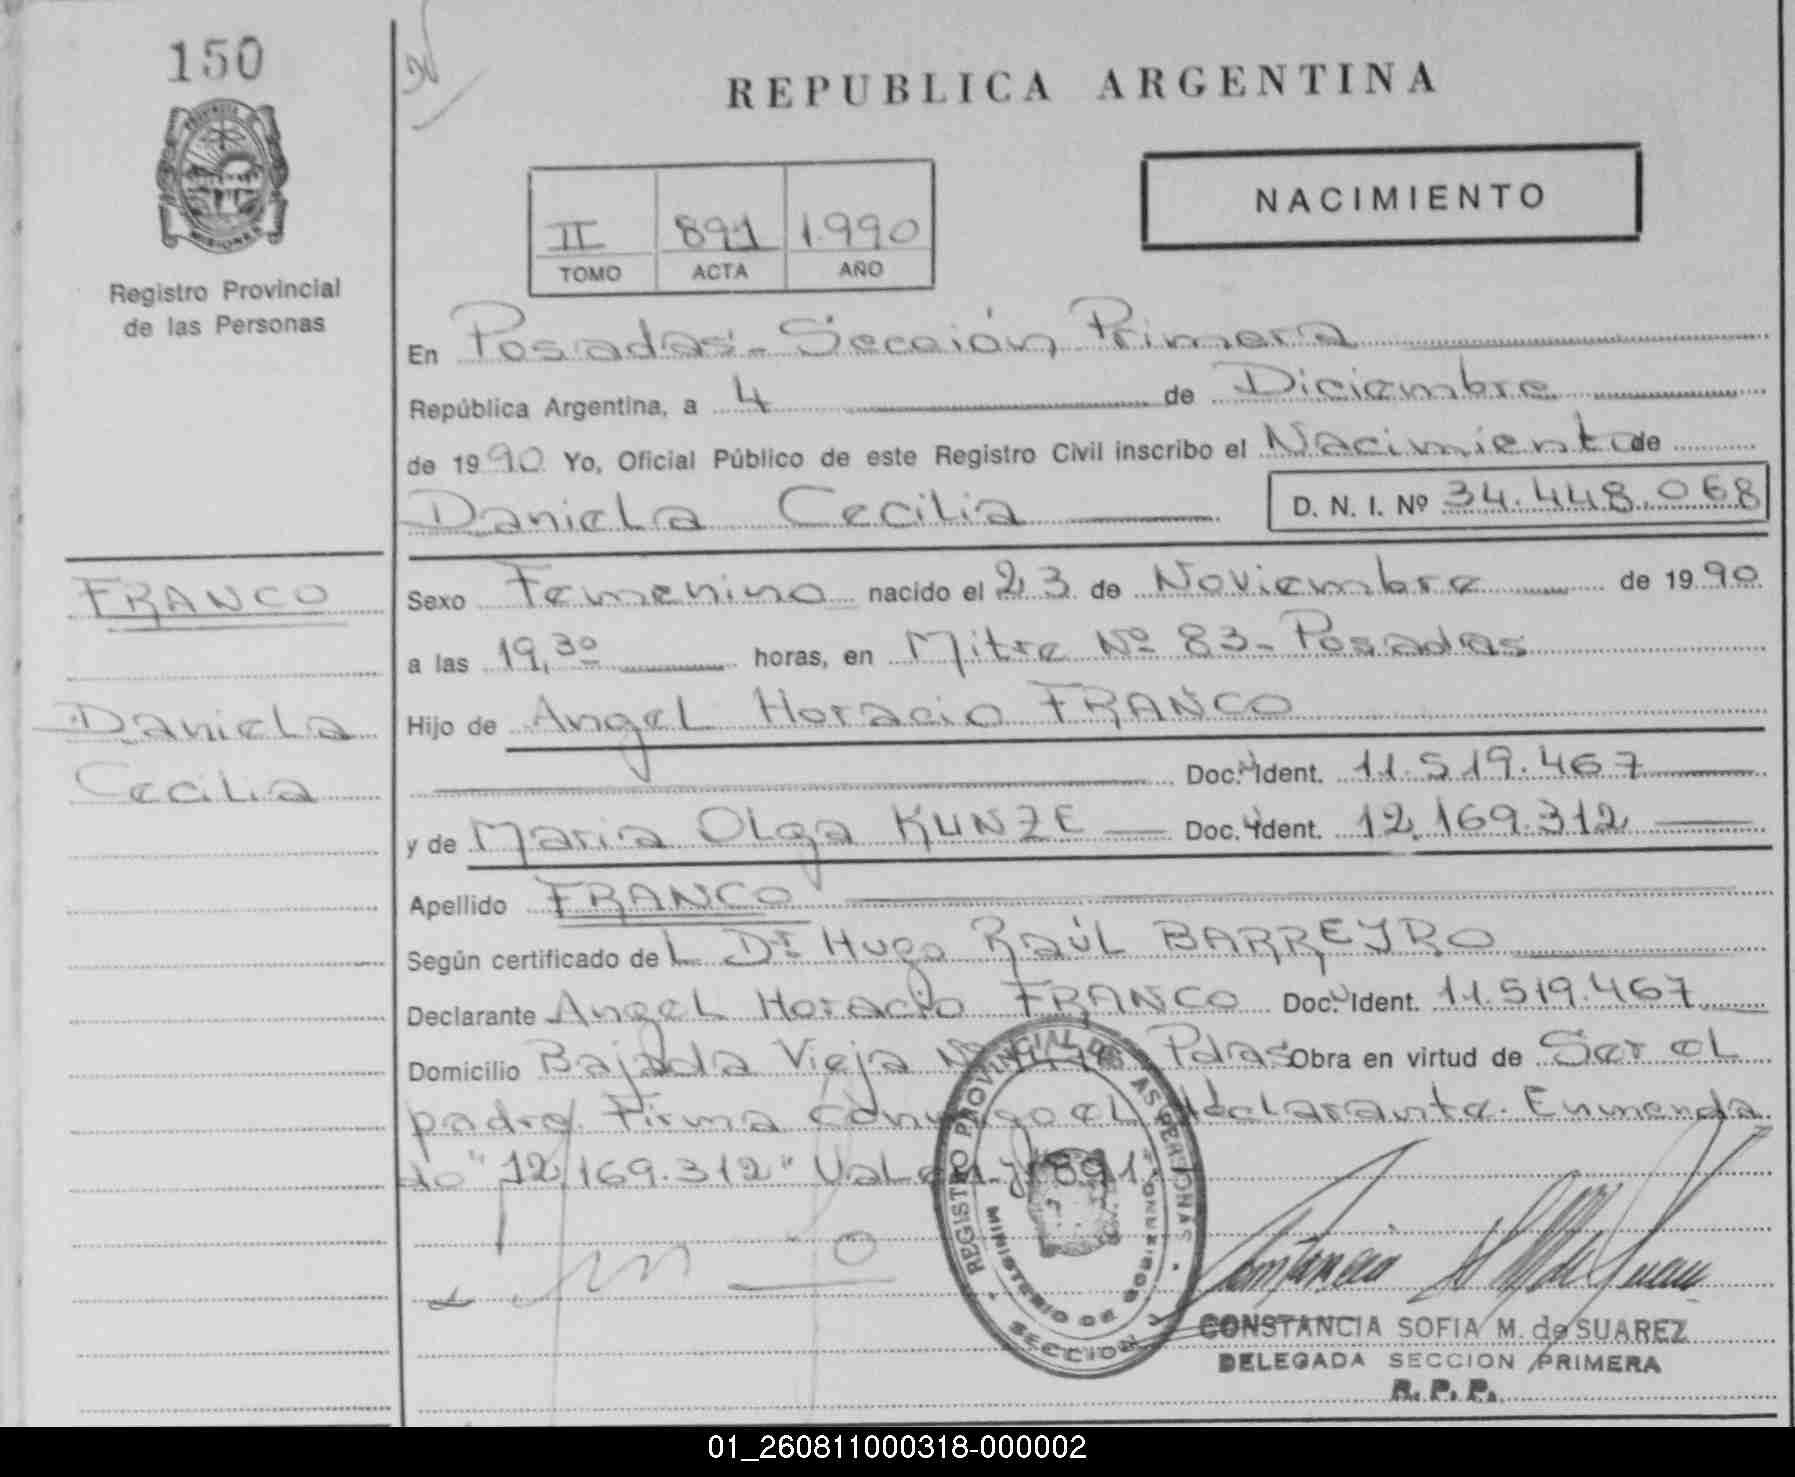 150
REPUBLICA ARGENTINA
PROVINCIA
MISIONES
Registro Provincial
de las Personas
NACIMIENTO
II 891 1990
TOMO ACTA AÑO
En Posadas - Sección Primera
República Argentina, a 4 de Diciembre
de 1990 Yo, Oficial Público de este Registro Civil inscribo el Nacimiento de
Daniela Cecilia D. N. I. Nº 34.448.068
FRANCO
Daniela
Cecilia
Sexo Femenino nacido el 23 de Noviembre de 1990
a las 19,30 horas, en Mitre Nº 83 - Posadas
Hijo de Angel Horacio FRANCO
Doc. Ident. 11.519.467
y de Maria Olga KUNZE Doc. Ident. 12.169.312
Apellido FRANCO
Según certificado del Dr Hugo Raúl BARREYRO
Declarante Angel Horacio FRANCO Doc. Ident. 11.519.467
Domicilio Bajada Vieja Pdas Obra en virtud de Ser el
padre. Firma conmigo el declarante. Enmenda
do "12.169.312" Valen y 891.
REGISTRO PROVINCIAL DE LAS PERSONAS
MINISTERIO DE GOBIERNO
SECCION 1
CONSTANCIA SOFIA M. de SUAREZ
DELEGADA SECCION PRIMERA
R. P. P.
01_260811000318-000002